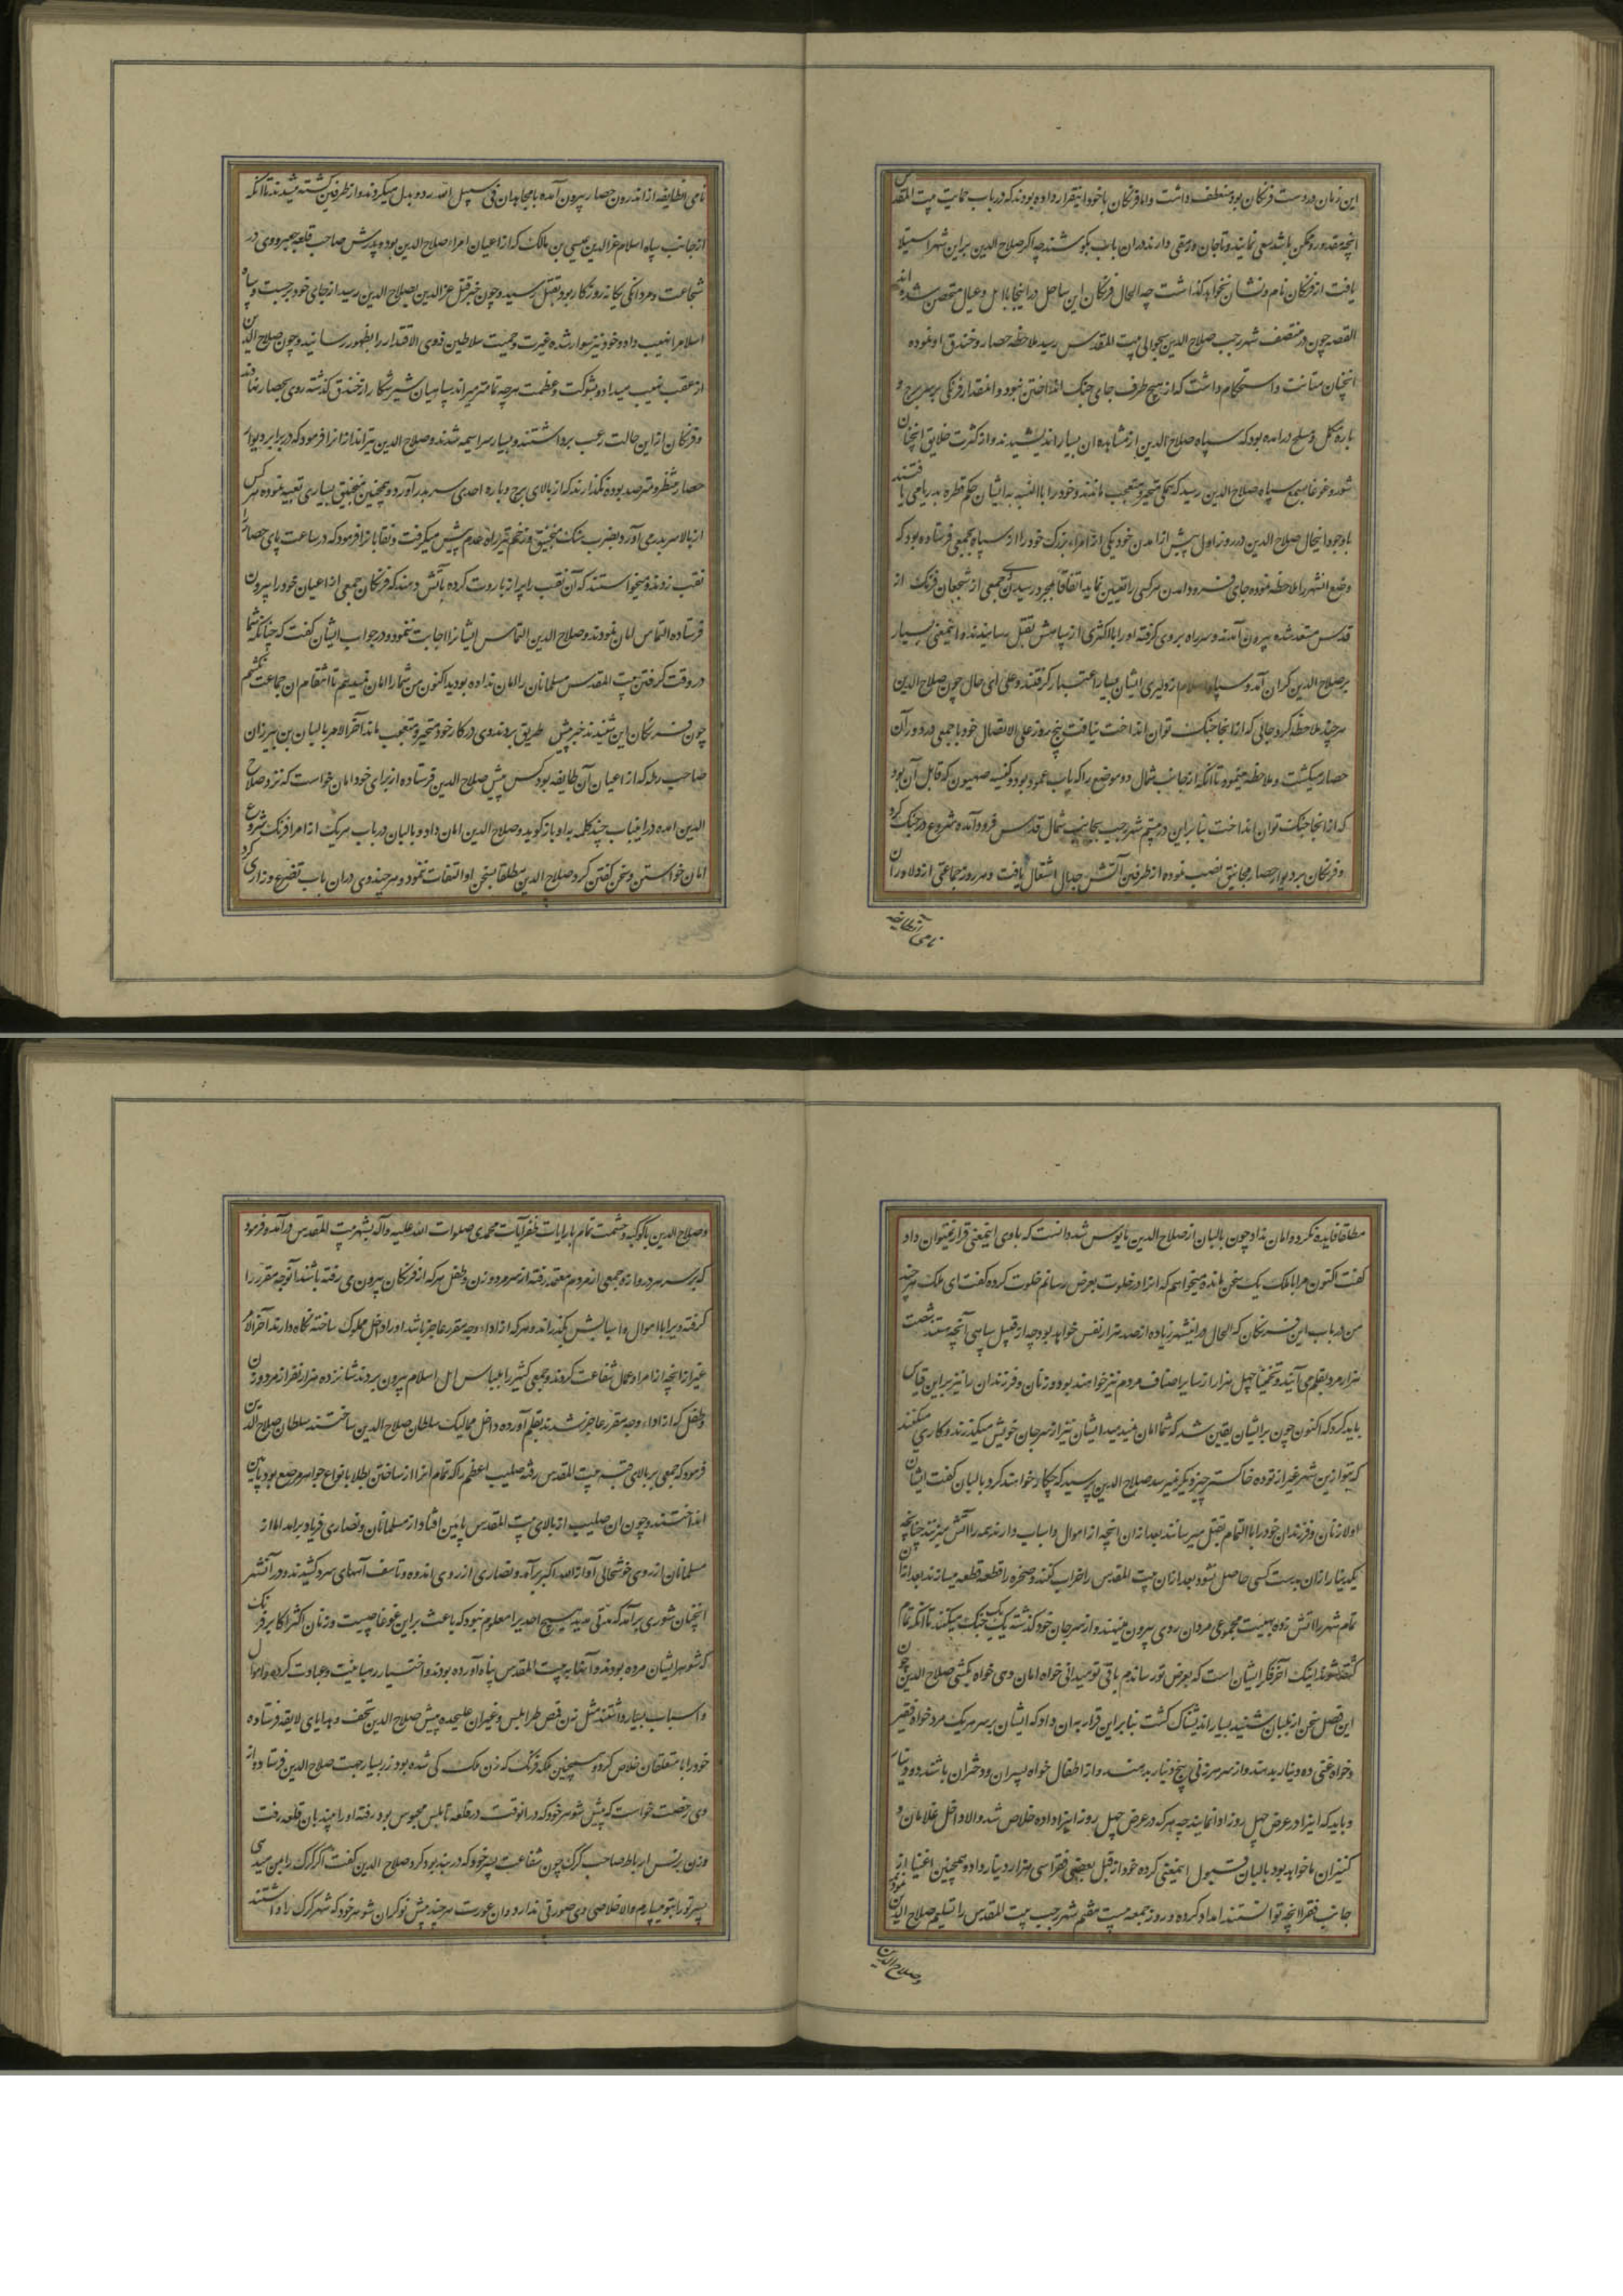 این زمان در دست فرنکان بود منعطف داشت واما فرنکان باخود اینقرار داده بودند که در باب حمایت بیت المقدس
انچه مقدور و ممکن باشد سعی نمایند و تا جان و رمقی دارند در ان باب بکوشند چه اکر صلاح الدین بر این شهر استیلا
یافت از فرنکان نام و نشان نخواهد کذاشت چه الحال فرنکان این ساحل در اینجا با اهل و عیال متحصن شده اند
القصه چون در منتصف شهر رجب صلاح الدین بحوالی بیت المقدس رسید ملاحظه حصار و خندق او نموده
انچنان متانت و استحکام داشت که از هیچ طرف جای جنک انداختن نبود و انمقدار فرنکی بر سر برج و
باره مکمل و مسلح در امده بود که سپاه صلاح الدین از مشاهده ان بسیار اندیشیدند و از کثرت خلایق انچنان
شور و غوغا بسمع سپاه صلاح الدین رسید که همکی متحیر و متعجب ماندند و خود را بالنسبه به ایشان حکم قطره بدریا می یافتند
باوجود اینحال صلاح الدین در روز اول پیش از امدن خود یکی از امراء بزرک خود را از سپاه بجمعی فرستاده بود که
وضع انشهر را ملاحظه نموده جای فرود امدن هر کس را تعیین نماید اتفاقا بمجرد رسیدن وی جمعی از شجعان فرنک از
قدس مستعد شده بیرون آمدند و سر راه بر وی کرفته او را با اکثری از سپاهش بقتل رسانیدند و اینمعنی بسیار
بر صلاح الدین کران آمد و سپاه اسلام از دلیری ایشان بسیار اعتبار کرفتند و علی ای حال چون صلاح الدین
هر چند ملاحظه کرد جائی که از انجا جنک توان انداخت نیافت پنج روز علی الاتصال خود با جمعی در دور آن
حصار میکشت و ملاحظه مینمود تا انکه از جانب شمال دو موضع را که باب عمود بود و کنیسه صهیون که قابل آن بود
که از انجا جنک توان انداخت بنابراین در بیستم شهر رجب بجانب شمال قدس فرود آمده شروع در جنک کرد
و فرنکان بر دیوار حصار مجانیق نصب نموده از طرفین آتش جدال اشتعال یافت و هر روز جماعتی از دلاوران
نامی انطایفه
نامی انطایفه از اندرون حصار بیرون آمده با مجاهدان فی سبیل الله رد و بدل میکردند و از طرفین کشته میشدند تا انکه
از جانب سپاه اسلام عز الدین عیسی بن مالک که از اعیان امراء صلاح الدین بوده پدرش صاحب قلعه جعبر و وی در
شجاعت و مردانکی یکانه روزکار بود بقتل رسید و چون خبر قتل عز الدین بصلاح الدین رسید از جای خود برجست و سپاه
اسلام را نهیب داد و خود نیز سوار شده غیرت و حمیت سلاطین ذوی الاقتدار را بظهور رسانید و چون صلاح الدین
از عقب نهیب میداد و بشوکت و عظمت هر چه تمامتر میراند سپاهیان شیر شکار از خندق کذشته روی بحصار نهادند
و فرنکان از این حالت رعب برداشتند و بسیار سراسیمه شدند و صلاح الدین تیر اندازانرا فرمود که در برابر دیوار
حصار منتظر و مترصد بوده نکذارند که از بالای برج و باره احدی سر بدر آورد و همچنین منجنیق بسیاری تعبیه نموده هر کس
از بالا سر بدر می آورد بضرب سنک منجنیق و زخم تیر راه عدم پیش میکرفت و نقابانرا فرمود که در ساعت پای حصار را
نقب زدند و میخواستند که آن نقب را پر از باروت کرده بآتش دهند که فرنکان جمعی از اعیان خود را بیرون
فرستاده التماس امان نمودند و صلاح الدین التماس ایشانرا اجابت ننمود و در جواب ایشان کفت که چنانکه شما
در وقت کرفتن بیت المقدس مسلمانان را امان نداده بودید اکنون من شما را امان نمیدهم تا انتقام ان جماعت نکشم
چون فرنکان این شنیدند خبر پیش طریق بردند وی در کار خود متحیر و متعجب ماند آخر الامر بالیان بن بیرزان
صاحب رمله که از اعیان آن طایفه بود کس پیش صلاح الدین فرستاده از برای خود امان خواست که نزد صلاح
الدین امده در اینباب چند کلمه به او باز کوید و صلاح الدین امان داد و بالیان در باب هر یک از امراء فرنک شروع
امان خواستن و سخن کفتن کرد صلاح الدین مطلقا بسخن او التفات ننمود و هر چند وی در ان باب تضرع و زاری کرد
مطلقا فایده نکرد و امان نداد چون بالیان از صلاح الدین مایوس شد دانست که با وی اینمعنی قرار نمیتوان داد
کفت اکنون مرا با ملک یک سخن مانده میخواهم که انرا در خلوت بعرض رسانم خلوت کرده کفت ای ملک هر چند
من در باب این فرنکان که الحال در اینشهر زیاده از صد هزار نفس خواهد بود چه از قبیل سپاهی آنچه هستند شصت
هزار مرد بقلم می آیند و تخمینا چهل هزار از سایر اصناف مردم نیز خواهند بود و زنان و فرزندان را نیز بر این قیاس
باید کرد که اکنون چون بر ایشان یقین شد که شما امان نمیدهید ایشان نیز از سر جان خویش میکذرند و کاری میکنند
که بتو از این شهر غیر از توده خاکستر چیز دیکر نمیرسد صلاح الدین پرسید که چکار خواهند کرد بالیان کفت ایشان
اولا زنان و فرزندان خود را بالتمام بقتل میرسانند بعد از ان انچه از اموال و اسباب دارند همه را آتش میزنند چنانچه
یکدینار از ان بدست کسی حاصل نشود بعد از ان بیت المقدس را خراب کنند و صخره را قطعه قطعه میسازند بعد از ان
تمام شهر را اتش زده بهیئت مجموعی مردان روی بیرون مینهند و از سر جان خود کذشته یک یک جنک میکنند تا انکه تمام
کشته شوند اینک آخر فکر ایشان است که بعرض تو رساندم باقی تو میدانی خواه امان دهی خواه بکشی صلاح الدین چون
این فصل سخن از بالیان شنید بسیار اندیشناک کشت بنابراین قرار به ان داد که ایشان بر سر هر یک مرد خواه فقیر
و خواه غنی ده دینار بدهند و از هر سر زنی پنج دینار بدهند و از اطفال خواه پسران و دختران باشند دو دینار
و باید که اینرا در عرض چهل روز ادا نمایند چه هر که در عرض چهل روز اینرا داده خلاص شد والا داخل غلامان و
کنیزان ما خواهد بود بالیان قبول اینمعنی کرده خود از قبل بعضی فقرا سی هزار دینار داد و همچنین اغنیا از
جانب فقرا انچه توانستند امداد کرده و روز جمعه بیست هفتم شهر رجب بیت المقدس را تسلیم صلاح الدین نمود
وصلاح الدین
وصلاح الدین با کوکبه و حشمت تمام با رایات ظفر آیات محمدی صلوات الله علیه وآله بشهر بیت المقدس در آمد و فرمود
که بر سر هر دروازه جمعی از مردم معتمد رفته از هر مرد و زن و طفل هر که از فرنکان بیرون می رفته باشند آنوجه مقرر را
کرفته ویرا با اموال و اسبابش بکذرانند و هر که از اداء وجه مقرر عاجز باشد او را داخل مملوک ساخته نکاه دارند آخر الامر
غیر از انچه از امرا و عمال شفاعت کردند و جمعی کثیر را بلباس اهل اسلام بیرون بردند شانزده هزار نفر از مرد و زن
و طفل که از اداء وجه مقرر عاجز شدند بقلم آورده داخل ممالیک سلطان صلاح الدین ساختند سلطان صلاح الدین
فرمود که جمعی بر بالای قبه بیت المقدس رفته صلیب اعظم را که تمام انرا از ساختن بطلا بانواع جواهر مرصع بود پائین
انداختند و چون ان صلیب از بالای بیت المقدس پایین افتاد از مسلمانان و نصاری فریاد برامد اما از
مسلمانان از روی خوشحالی آواز الله اکبر برآمد و نصاری از روی اندوه و تاسف آههای سرد کشیدند و در آنشهر
انچنان شوری برآمد که مدتی مدید هیچ احدی را معلوم نبود که باعث بر این غوغا چیست و زنان اکثر اکابر فرنک
که شوهر ایشان مرده بودند و آنها به بیت المقدس پناه آورده بودند و اختیار رهبانیت و عبادت کرده و اموال
و اسباب بسیار داشتند مثل زن قمص طرابلس و غیر ان علیحده پیش صلاح الدین تحف و هدایای لایقه فرستاده
خود را با متعلقان خلاص کرد و همچنین ملکه فرنک که زن ملک کی شده بود زر بسیار جهت صلاح الدین فرستاده از
وی رخصت خواست که پیش شوهر خود که در انوقت در قلعه نابلس محبوس بود رفته او را ببیند بان قلعه رفت
و زن برنس ارباط صاحب کرک چون شفاعت پسر خود که در بند بود کرد صلاح الدین کفت اکر کرک را بمن میدهی
پسر تو را بتو میسپارم والا خلاصی وی صورتی ندارد و ان عورت هر چند پیش نوکران شوهر خود که شهر کرک را داشتند